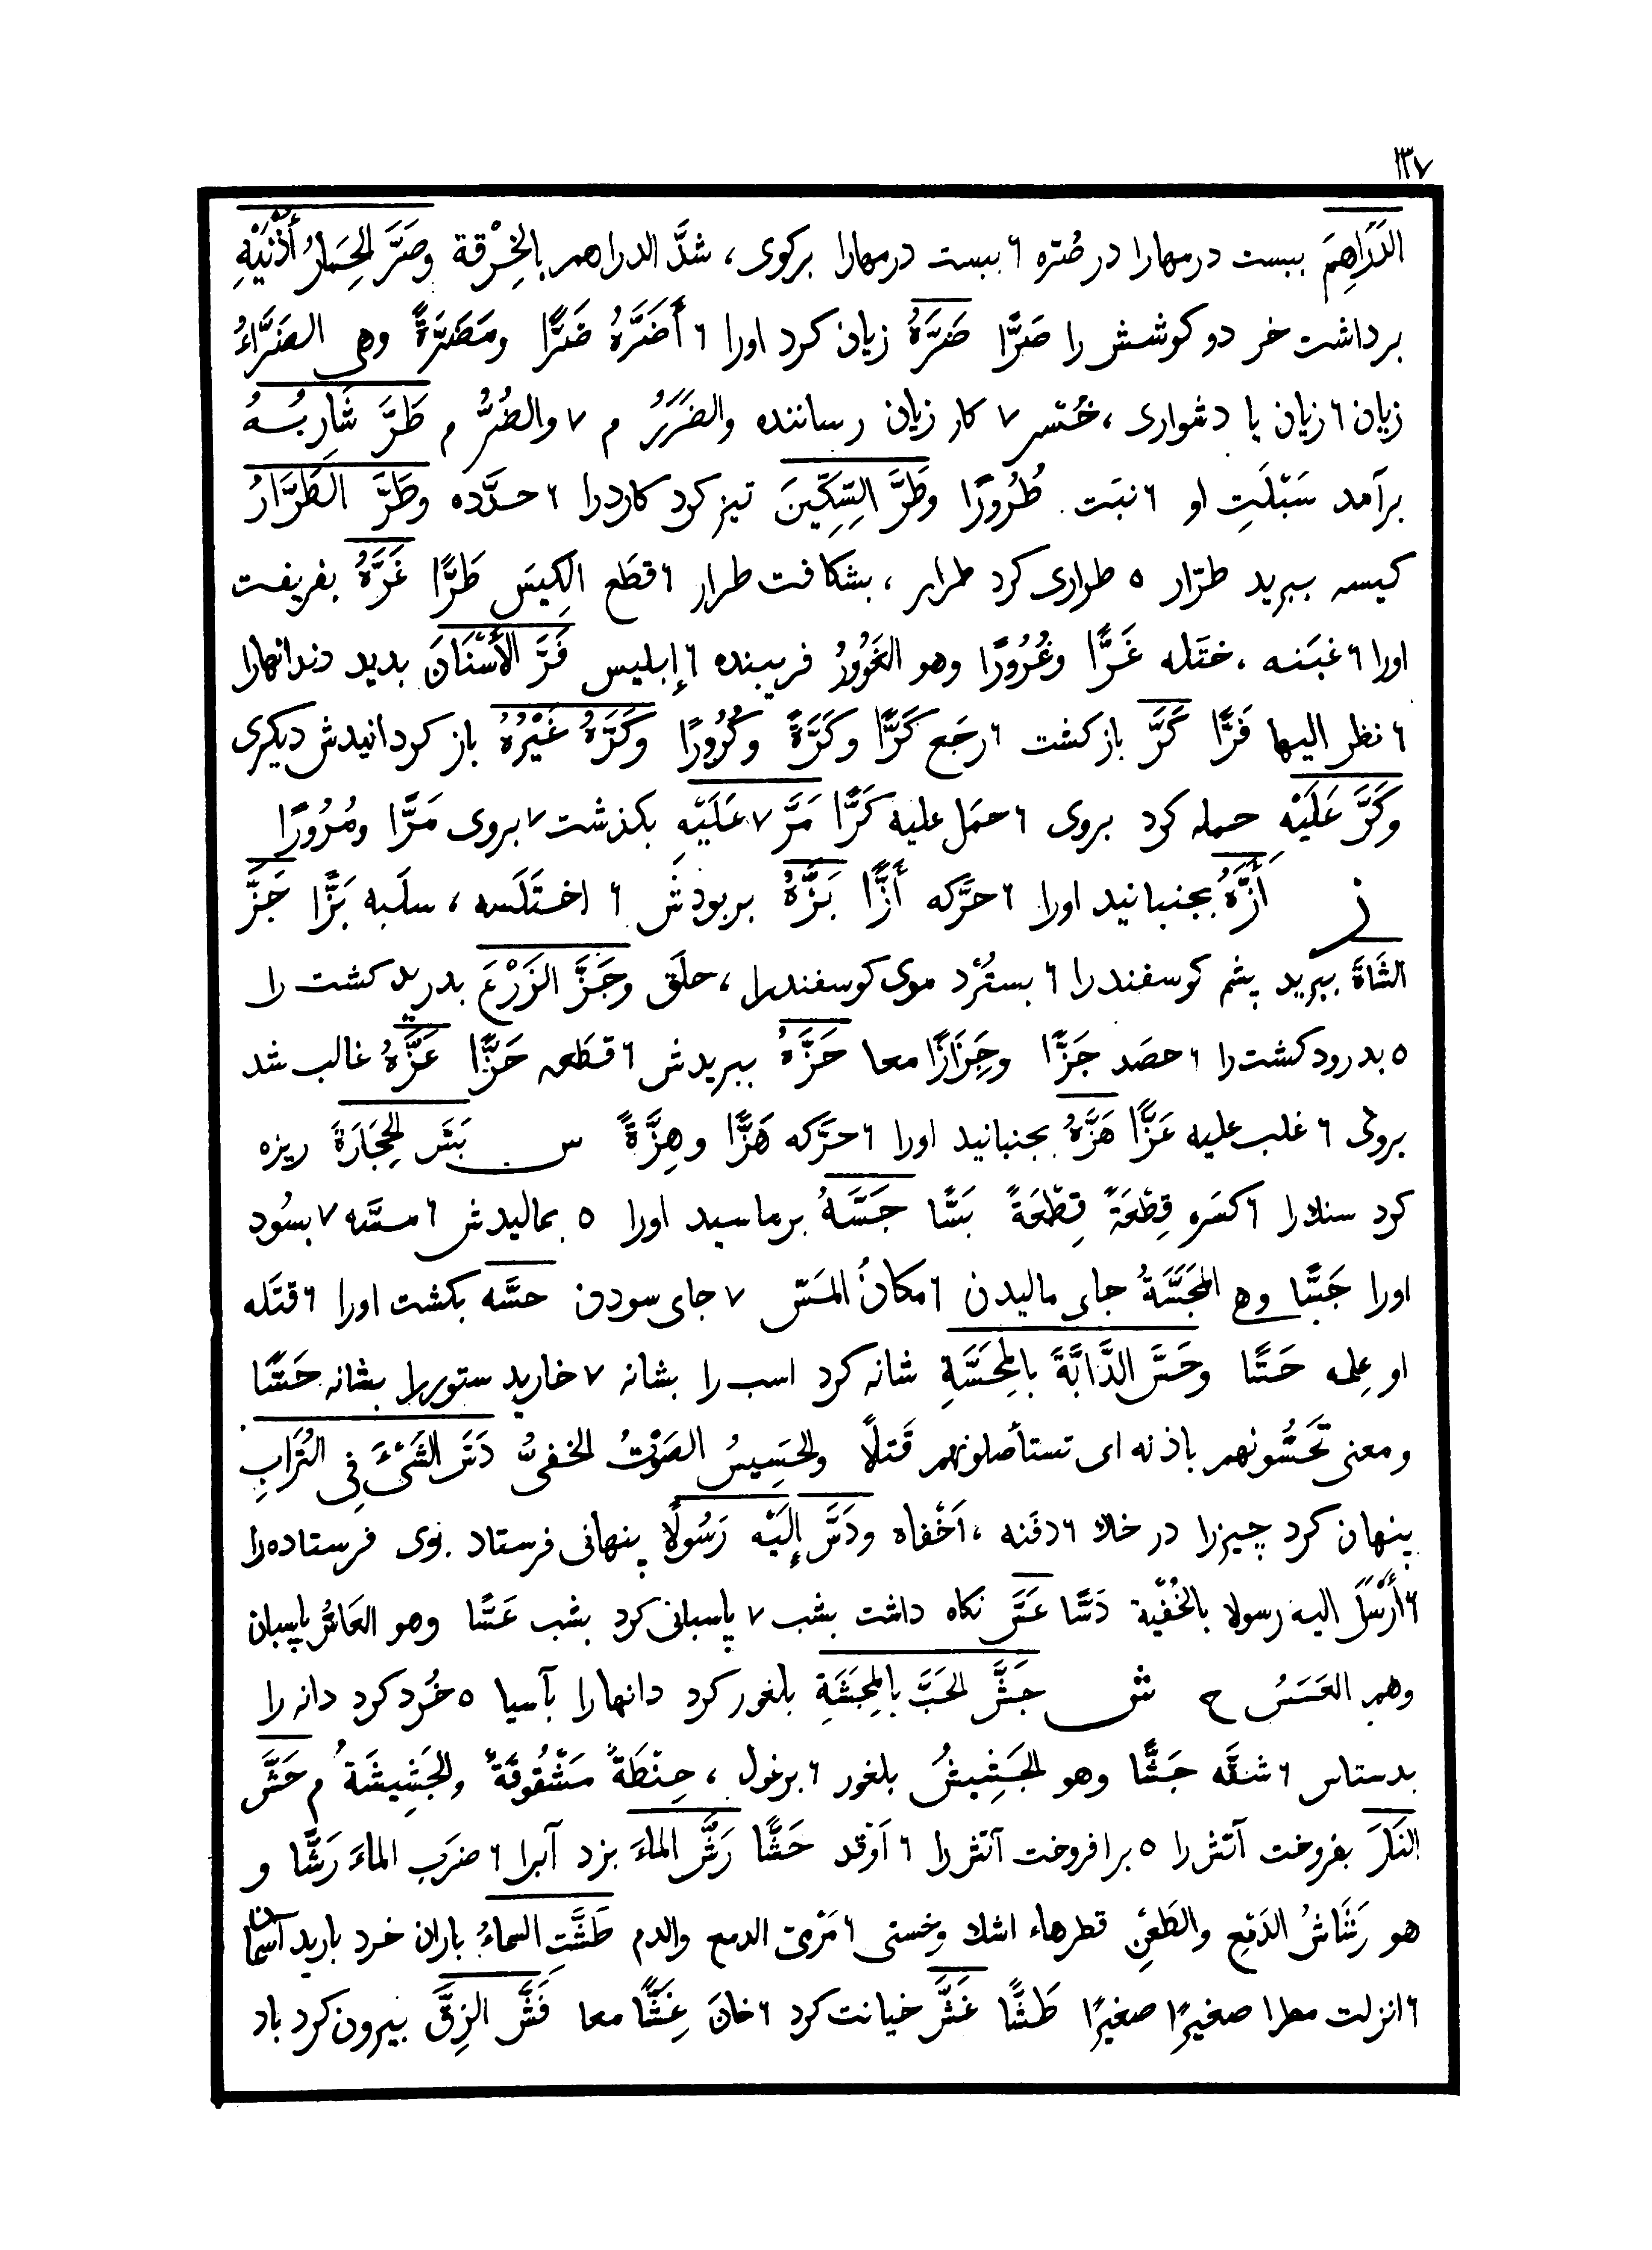 ١٣٧
الدَّرَاهِمَ ببست درمهارا در صُرّه ٦ ببست درمهارا برکوی، شدَّ الدراهم بالخِرْقة وصَرَّ الحِمَارُ أُذُنَيْهِ
برداشت خر دو کوشش را صَرًّا ضَرَّهُ زیان کرد اورا ٦ أَضَرَّهُ ضَرًّا ومَضَرَّةً وهی الضَرَّاءُ
زیان ٦ زیان یا دشواری، خُسر ٧ کار زیان رساننده والضَرَرُ م ٧ والضُرُّ م طَرَّ شَارِبُهُ
برآمد سَبْلَتِ او ٦ نبَت طُرُورًا وطَرَّ السِّكِّينَ تیز کرد کاردرا ٦ حدَّده وطَرَّ الطَرَّارُ
کیسه ببرید طرّار ٥ طراری کرد طرار، بشکافت طرار ٦ قطَع الكِيسَ طَرًّا غَرَّهُ بفریفت
اورا ٦ غبَنه، ختَله غَرًّا وغُرُورًا وهو الغَرُورُ فریبنده ٦ إبلیس فَرَّ الأَسْنَانَ بدید دندانهارا
٦ نظر الیها فَرًّا كَرَّ بازکشت ٦ رجَع كَرًّا وكَرَّةً وكُرُورًا وكَرَّهُ غَيْرُهُ باز کردانیدش دیکری
وكَرَّ عَلَيْهِ حمله کرد بروی ٦ حمَل علیه كَرًّا مَرَّ ٧ عَلَيْهِ بکذشت ٧ بروی مَرًّا ومُرُورًا
ز أَزَّهُ بجنبانید اورا ٦ حرَّکه أَزًّا بَزَّهُ بربودش ٦ اختَلَسه، سلَبه بَزًّا جَزَّ
الشَاةَ ببرید پشم کوسفندرا ٦ بستُرد موی کوسفندرا، حلَق وجَزَّ الزَرْعَ بدرید کشت را
٥ بدرود کشت را ٦ حصَد جَزًّا وجِزَازًا معا حَزَّهُ ببریدش ٦ قطَعه حَزًّا عَزَّهُ غالب شد
بروی ٦ غلب علیه عَزًّا هَزَّهُ بجنبانید اورا ٦ حرَّکه هَزًّا وهِزَّةً س بَسَّ الحِجَارَةَ ریزه
کرد سنک را ٦ کسَره قِطْعَةً قِطْعَةً بَسًّا جَسَّهُ برماسید اورا ٥ بمالیدش ٦ مسَّه ٧ بسُود
اورا جَسًّا وهی المَجَسَّةُ جای مالیدن ٦ مکانُ المَسّ ٧ جای سودن حسَّه بکشت اورا ٦ قتَله
او علمه حَسًّا وحَسَّ الدَّابَّةَ بالمِحَسَّةِ شانه کرد اسب را بشانه ٧ خارید ستوررا بشانه حَسًّا
ومعنی تَحُسُّونهم باذنه ای تستأصلونهم قَتلًا والحَسِيسُ الصَوْتُ الخفیُّ دَسَّ الشَیْءَ فِی التُرَابِ
پنهان کرد چیزرا در خاک ٦ دفَنه، اَخْفاه ودَسَّ إِلَيْهِ رَسُولًا پنهانی فرستاد بوی فرستاده را
٦ أرْسَلَ الیه رسولا بالخُفْیة دَسًّا عَسَّ نکاه داشت بشب ٧ پاسبانی کرد بشب عَسًّا وهو العَاسُّ پاسبان
وهم العَسَسُ ح ش جَشَّ الحَبَّ بالمِجَشَّةِ بلغور کرد دانهارا بآسیا ٥ خُرد کرد دانه را
بدستاس ٦ شقَّه جَشًّا وهو الجَشِيشُ بلغور ٦ برغول، حِنْطَةٌ مَشْقُوقَةٌ والجَشِيشَةُ م حَشَّ
النَارَ بفروخت آتش را ٥ برافروخت آتش را ٦ اَوْقد حَشًّا رَشَّ المَاءَ بزد آبرا ٦ ضرَب الماءَ رَشًّا و
هو رَشَاشُ الدَمْعِ والطَعْنِ قطرهاء اشک وخستی ٦ مَرْمیَ الدمع والدم طَشَّتِ السماءُ باران خرد بارید آسمان
٦ انزلت مطرا صغیرًا صغیرًا طَشًّا غَشَّ خیانت کرد ٦ خانَ غِشًّا معا فَشَّ الزِقَّ بیرون کرد باد